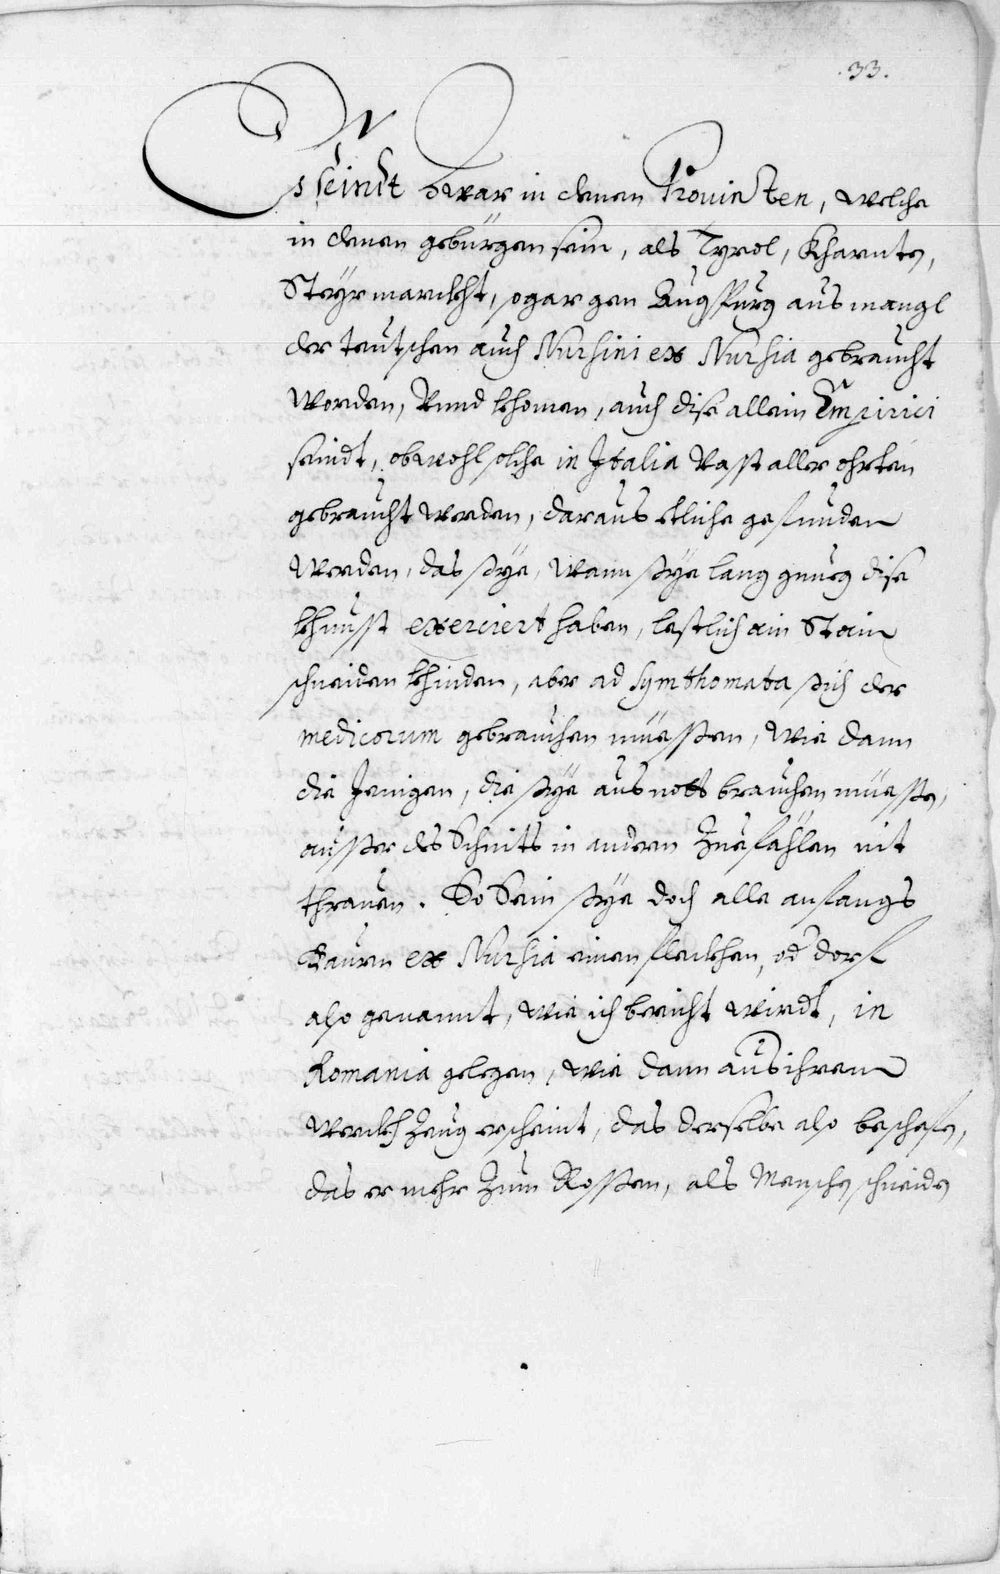 .33.
Es seindt zwar in denen Prouinzen, welche
in denen gebürgen sein, als Tyrol, Kharnten,
Steyrmarckht, sogar gen Augspurg aus mangl
der teutschen auch Nursini ex Nursia gebraucht
worden, Vnnd khomen, auch dise allein Empirici
seindt, obwohl solche in Italia Vasst aller ohrten
gebraucht werden, daraus etliche gefunden
werden, das sye, wann sye lang gnueg dise
khunsst exerciert haben, lestlich ain Stain
schneiden khinden, aber ad symthomata sich der
medicorum gebrauchen müessen, wie dann
die Jenigen, die sye aus nott brauchen müessen,
ausser des Schnits in andern Zuefählen nit
thrauen. So Sein sye doch alle anfangs
Bauren ex Nursia einen fleckhen, od dorf
also genannt, wie ich bericht wirdt, in
Romania gelegen, wie dann aus ihren
werckhZeug erscheint, das derselbe also beschafen,
das er mehr Zum Rossen, als Menschen schneiden